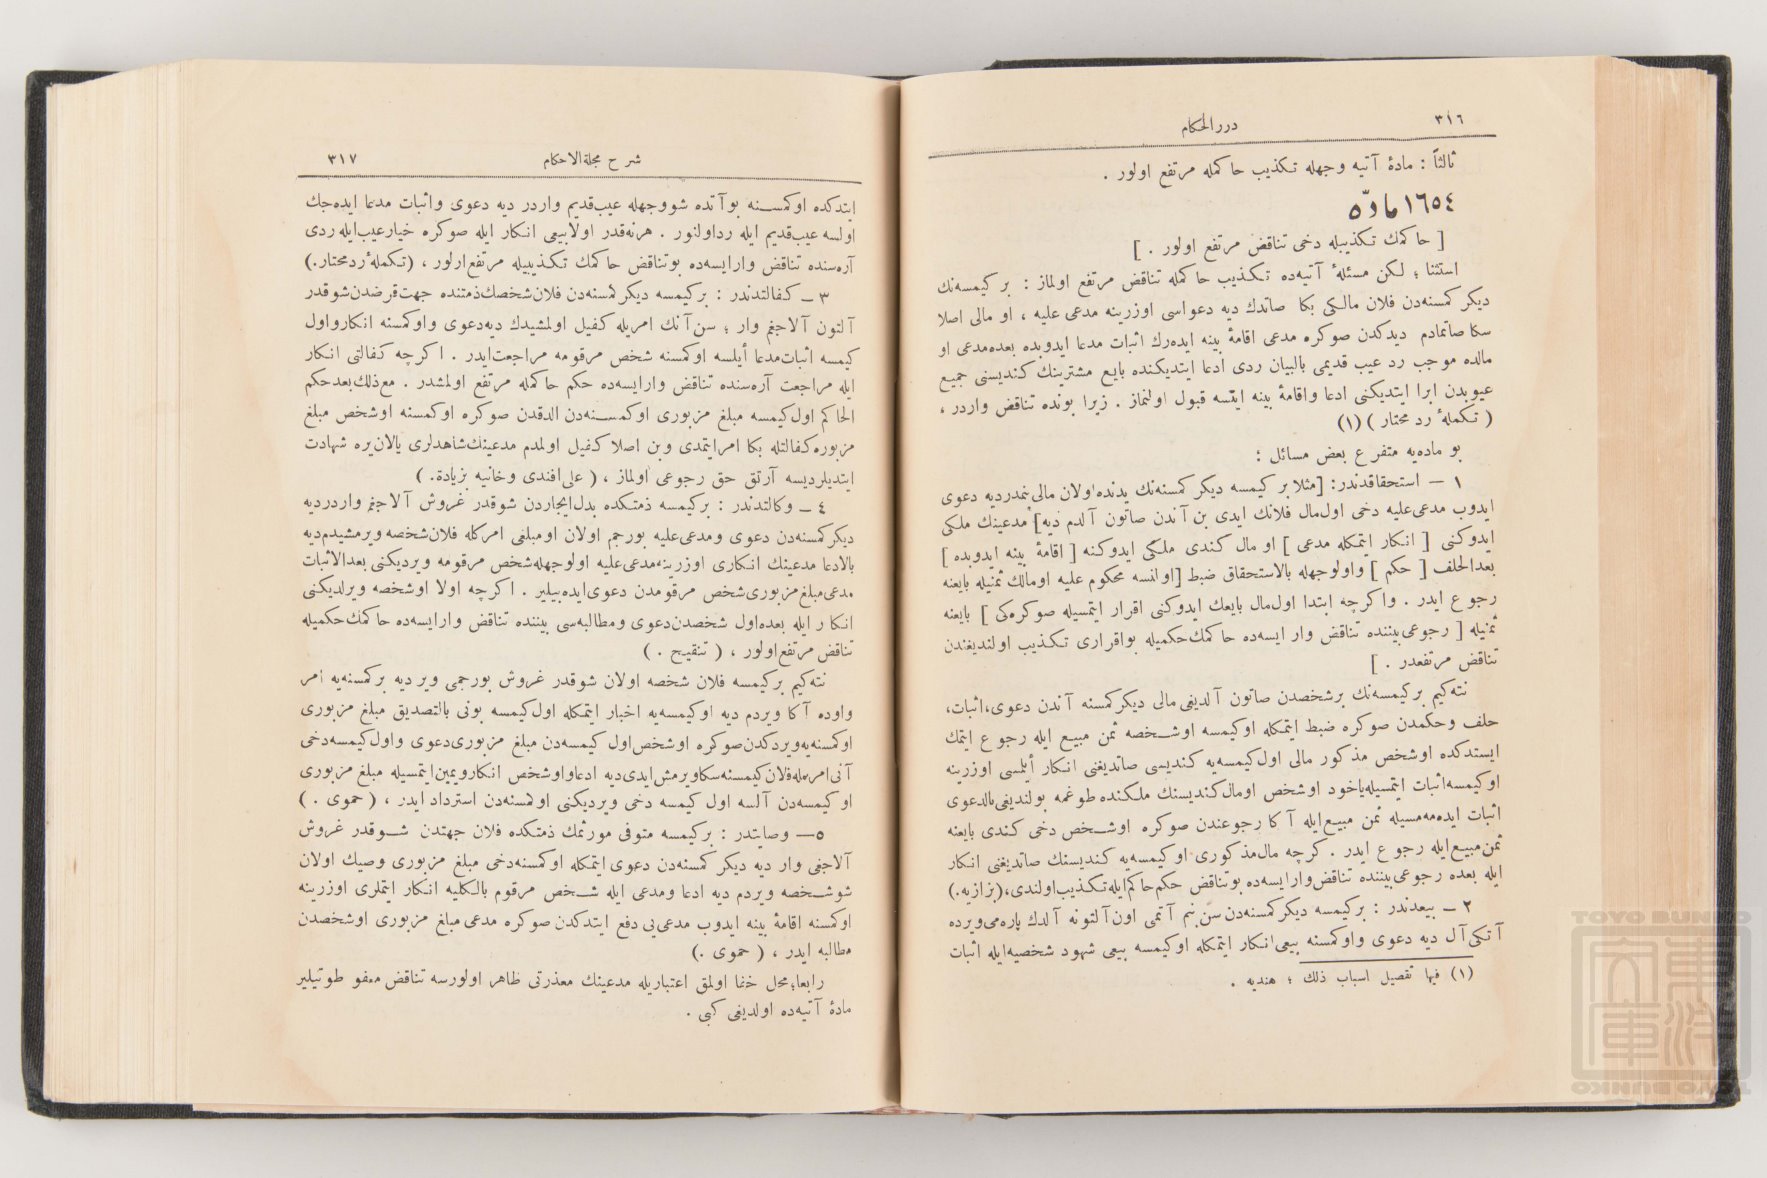 ٣١٦
دررالحكام
ثالثاً : مادهٔ آتيه وجهله تكذيب حاكمله مرتفع اولور .
١٦٥٤ مادّه
[ حاكمك تكذيبيله دخى تناقض مرتفع اولور . ]
استثنا ؛ لكن مسئلهٔ آتيه‌ده تكذيب حاكمله تناقض مرتفع اولماز : بر كيمسه‌نك
ديكر كمسنه‌دن فلان مالكى بكا صاتدك ديه دعواسى اوزرينه مدعى عليه ، او مالى اصلا
سكا صاتمادم ديدكدن صوكره مدعى اقامهٔ بينه ايده‌رك اثبات مدعا ايدوبده بعده مدعى او
مالده موجب رد عيب قديمى بالبيان ردى ادعا ايتديكنده بايع مشترينك كنديسنى جميع
عيوبدن ابرا ايتديكنى ادعا واقامهٔ بينه ايتسه قبول اولنماز . زيرا بونده تناقض واردر ،
( تكملهٔ رد محتار ) (١)
بو ماده‌يه متفرع بعض مسائل :
١ – استحقاقدندر: [مثلا بر كيمسه ديكر كمسنه‌نك يدنده اولان مالى بنمدر ديه دعوى
ايدوب مدعى‌عليه دخى اول‌مال فلانك ايدى بن آندن صاتون آلدم ديه] مدعينك ملكى
ايدوكنى [ انكار ايتمكله مدعى ] او مال كندى ملكى ايدوكنه [ اقامهٔ بينه ايدوبده ]
بعدالحلف [ حكم ] واولوجهله بالاستحقاق ضبط [اولنسه محكوم عليه اومالك ثمنيله بايعنه
رجوع ايدر . واكرچه ابتدا اول‌مال بايعك ايدوكنى اقرار ايتمسيله صوكره‌كى ] بايعنه
ثمنيله [ رجوعى بيننده تناقض وار ايسه‌ده حاكمك حكميله بواقرارى تكذيب اولنديغندن
تناقض مرتفعدر . ]
نته‌كيم بر كيمسه‌نك برشخصدن صاتون آلديغى مالى ديكر كمسنه آندن دعوى،اثبات،
حلف وحكمدن صوكره ضبط ايتمكله اوكيمسه اوشخصه ثمن مبيع ايله رجوع ايتمك
ايستدكده اوشخص مذكور مالى اول‌كيمسه‌يه كنديسى صاتديغنى انكار أيلمسى اوزرينه
اوكيمسه اثبات ايتمسيله‌ياخود اوشخص اومال كنديسنك ملكنده طوغمه بولنديغى بالدعوى
اثبات ايده‌مه‌مسيله ثمن مبيع ايله آكا رجوعندن صوكره اوشخص دخى كندى بايعنه
ثمن مبيع ايله رجوع ايدر . كرچه مال مذكورى اوكيمسه‌يه كنديسنك صاتديغنى انكار
ايله بعده رجوعى بيننده تناقض وارايسه‌ده بوتناقض حكم حاكم ايله تكذيب اولندى،(بزازيه.)
٢ – بيعدندر : بركيمسه ديكر كمسنه‌دن سن بنم آتمى اون آلتونه آلدك پاره‌مى ويرده
آتكى آل ديه دعوى واوكمسنه بيعى انكار ايتمكله اوكيمسه بيعى شهود شخصيه ايله اثبات
(١) فيها تفصيل اسباب ذلك ؛ هنديه .
شرح مجلةالاحكام
٣١٧
ايتدكده اوكمسنه بوآتده شووجهله عيب‌قديم واردر ديه دعوى واثبات مدعا ايده‌جك
اولسه عيب‌قديم ايله رداولنور . هرنه‌قدر اولا بيعى انكار ايله صوكره خيار عيب ايله ردى
آره‌سنده تناقض وارايسه‌ده بوتناقض حاكمك تكذيبيله مرتفع اولور ، (تكملهٔ ردمحتار.)
٣ – كفالتدندر : بركيمسه ديكر كمسنه‌دن فلان شخصك ذمتنده جهت قرضدن شوقدر
آلتون آلاجغم وار ؛ سن آنك امريله كفيل اولمشيدك ديه دعوى واوكمسنه انكار واول
كيمسه اثبات مدعا أيلسه اوكمسنه شخص مرقومه مراجعت ايدر . اكرچه كفالتى انكار
ايله مراجعت آره‌سنده تناقض وارايسه‌ده حكم حاكمله مرتفع اولمشدر . مع‌ذلك بعدحكم
الحاكم اول‌كيمسه مبلغ مزبورى اوكمسنه‌دن الدقدن صوكره اوكمسنه اوشخص مبلغ
مزبوره كفالتله بكا امر ايتمدى وبن اصلا كفيل اولمدم مدعينك شاهدلرى يالان‌يره شهادت
ايتديلر ديسه آرتق حق رجوعى اولماز ، ( على افندى وخانيه بزيادة. )
٤ – وكالتدندر : بركيمسه ذمتكده بدل‌ايجاردن شوقدر غروش آلاجغم واردر ديه
ديكر كمسنه‌دن دعوى ومدعى‌عليه بورجم اولان اومبلغى امركله فلان شخصه ويرمشيدم ديه
بالادعا مدعينك انكارى اوزرينه مدعى‌عليه اولوجهله شخص مرقومه ويرديكنى بعدالاثبات
مدعى مبلغ مزبورى شخص مرقومدن دعوى ايده‌بيلير . اكرچه اولا اوشخصه ويرلديكنى
انكار ايله بعده اول شخصدن دعوى ومطالبه‌سى بيننده تناقض وارايسه‌ده حاكمك حكميله
تناقض مرتفع اولور ، ( تنقيح . )
نته‌كيم بركيمسه فلان شخصه اولان شوقدر غروش بورجمى وير ديه بركمسنه‌يه امر
واوده آكا ويردم ديه اوكيمسه‌يه اخبار ايتمكله اول‌كيمسه بونى بالتصديق مبلغ مزبورى
اوكمسنه‌يه ويردكدن صوكره اوشخص اول كيمسه‌دن مبلغ مزبورى دعوى واول كيمسه دخى
آنى امرمله فلان كيمسنه سكا ويرمش ايدى ديه ادعا واوشخص انكار ويمين ايتمسيله مبلغ مزبورى
اوكيمسه‌دن آلسه اول كيمسه دخى ويرديكنى اوكمسنه‌دن استرداد ايدر ، ( حموى . )
٥ – وصايتدر : بركيمسه متوفى مورثمك ذمتكده فلان جهتدن شوقدر غروش
آلاجغى وار ديه ديكر كمسنه‌دن دعوى ايتمكله اوكمسنه دخى مبلغ مزبورى وصيك اولان
شوشخصه ويردم ديه ادعا ومدعى ايله شخص مرقوم بالكليه انكار ايتملرى اوزرينه
اوكمسنه اقامهٔ بينه ايدوب مدعى‌يى دفع ايتدكدن صوكره مدعى مبلغ مزبورى اوشخصدن
مطالبه ايدر ، ( حموى .)
رابعا؛محل خفا اولمق اعتباريله مدعينك معذرتى ظاهر اولورسه تناقض معفو طوتيلير
مادهٔ آتيه‌ده اولديغى كبى .
TOYO BUNKO